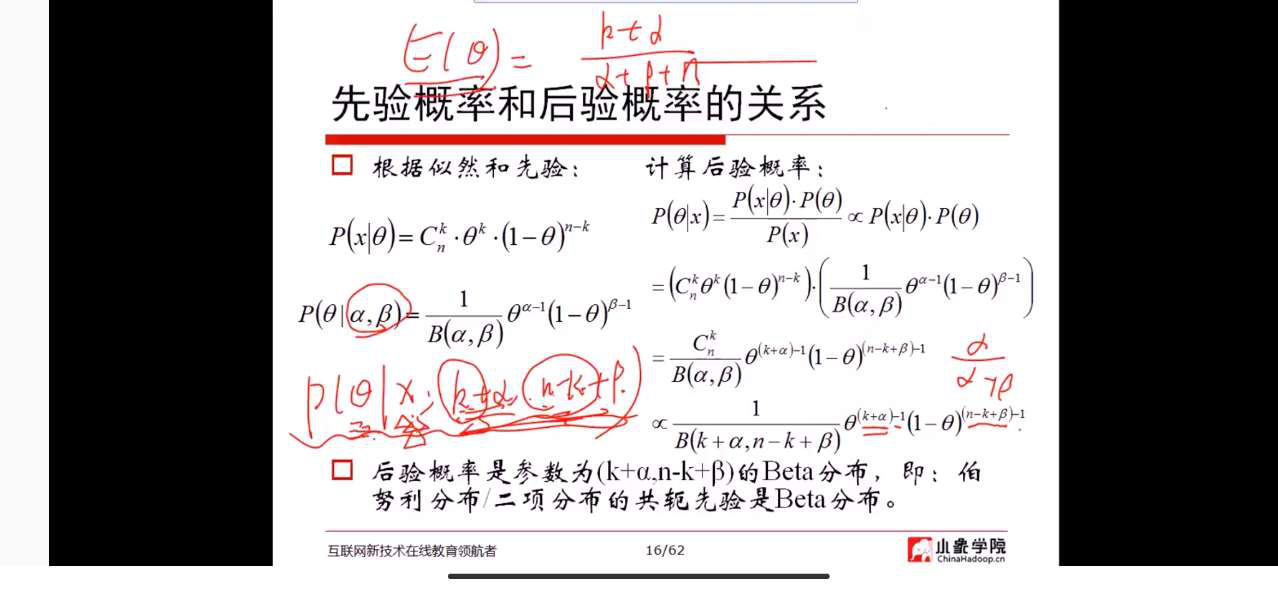 E(θ) = k+α / α+β+n
先验概率和后验概率的关系
根据似然和先验：
P(x|θ) = C_n^k · θ^k · (1−θ)^{n−k}
P(θ|α,β) = 1 / B(α,β) θ^{α−1}(1−θ)^{β−1}
P(θ|x; k+α, n-k+β)
计算后验概率：
P(θ|x) = P(x|θ)·P(θ) / P(x) ∝ P(x|θ)·P(θ)
= (C_n^k θ^k (1−θ)^{n−k}) · (1 / B(α,β) θ^{α−1}(1−θ)^{β−1})
= C_n^k / B(α,β) θ^{(k+α)−1}(1−θ)^{(n−k+β)−1}
α / α+β
∝ 1 / B(k+α,n−k+β) θ^{(k+α)−1}(1−θ)^{(n−k+β)−1}
后验概率是参数为(k+α,n-k+β)的Beta分布，即：伯
努利分布/二项分布的共轭先验是Beta分布。
互联网新技术在线教育领航者
16/62
小象学院
ChinaHadoop.cn